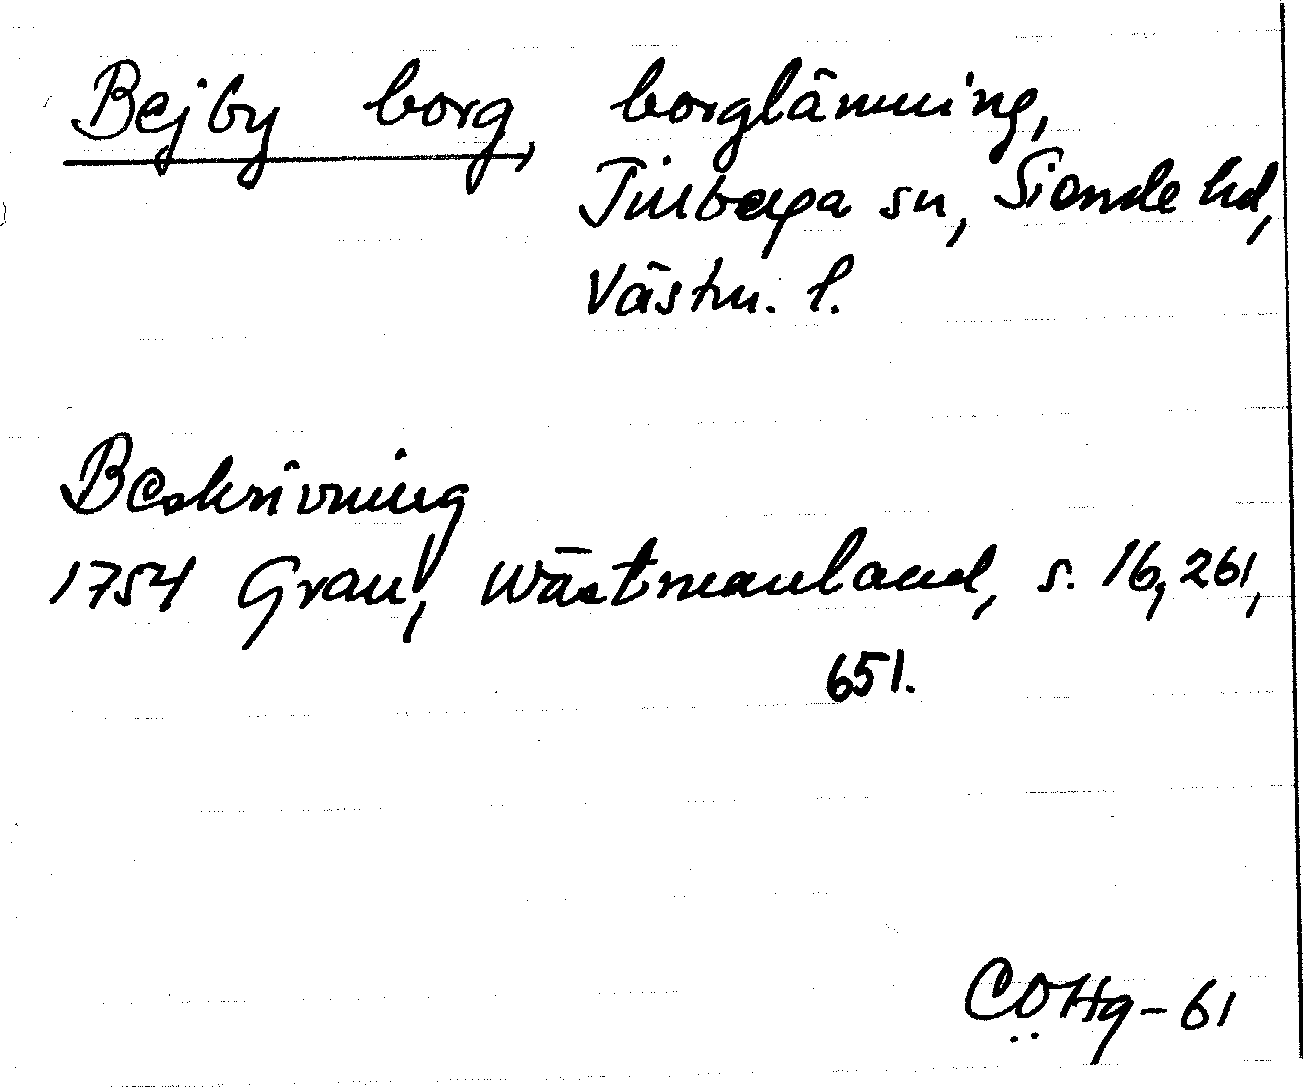 Bejby borg, borglämning,
Tillberga sn, Siende hd,
Västm. l.
Beskrivning
1754 Grau, Wästmanland, s. 16, 261,
651.
CÖHg-61